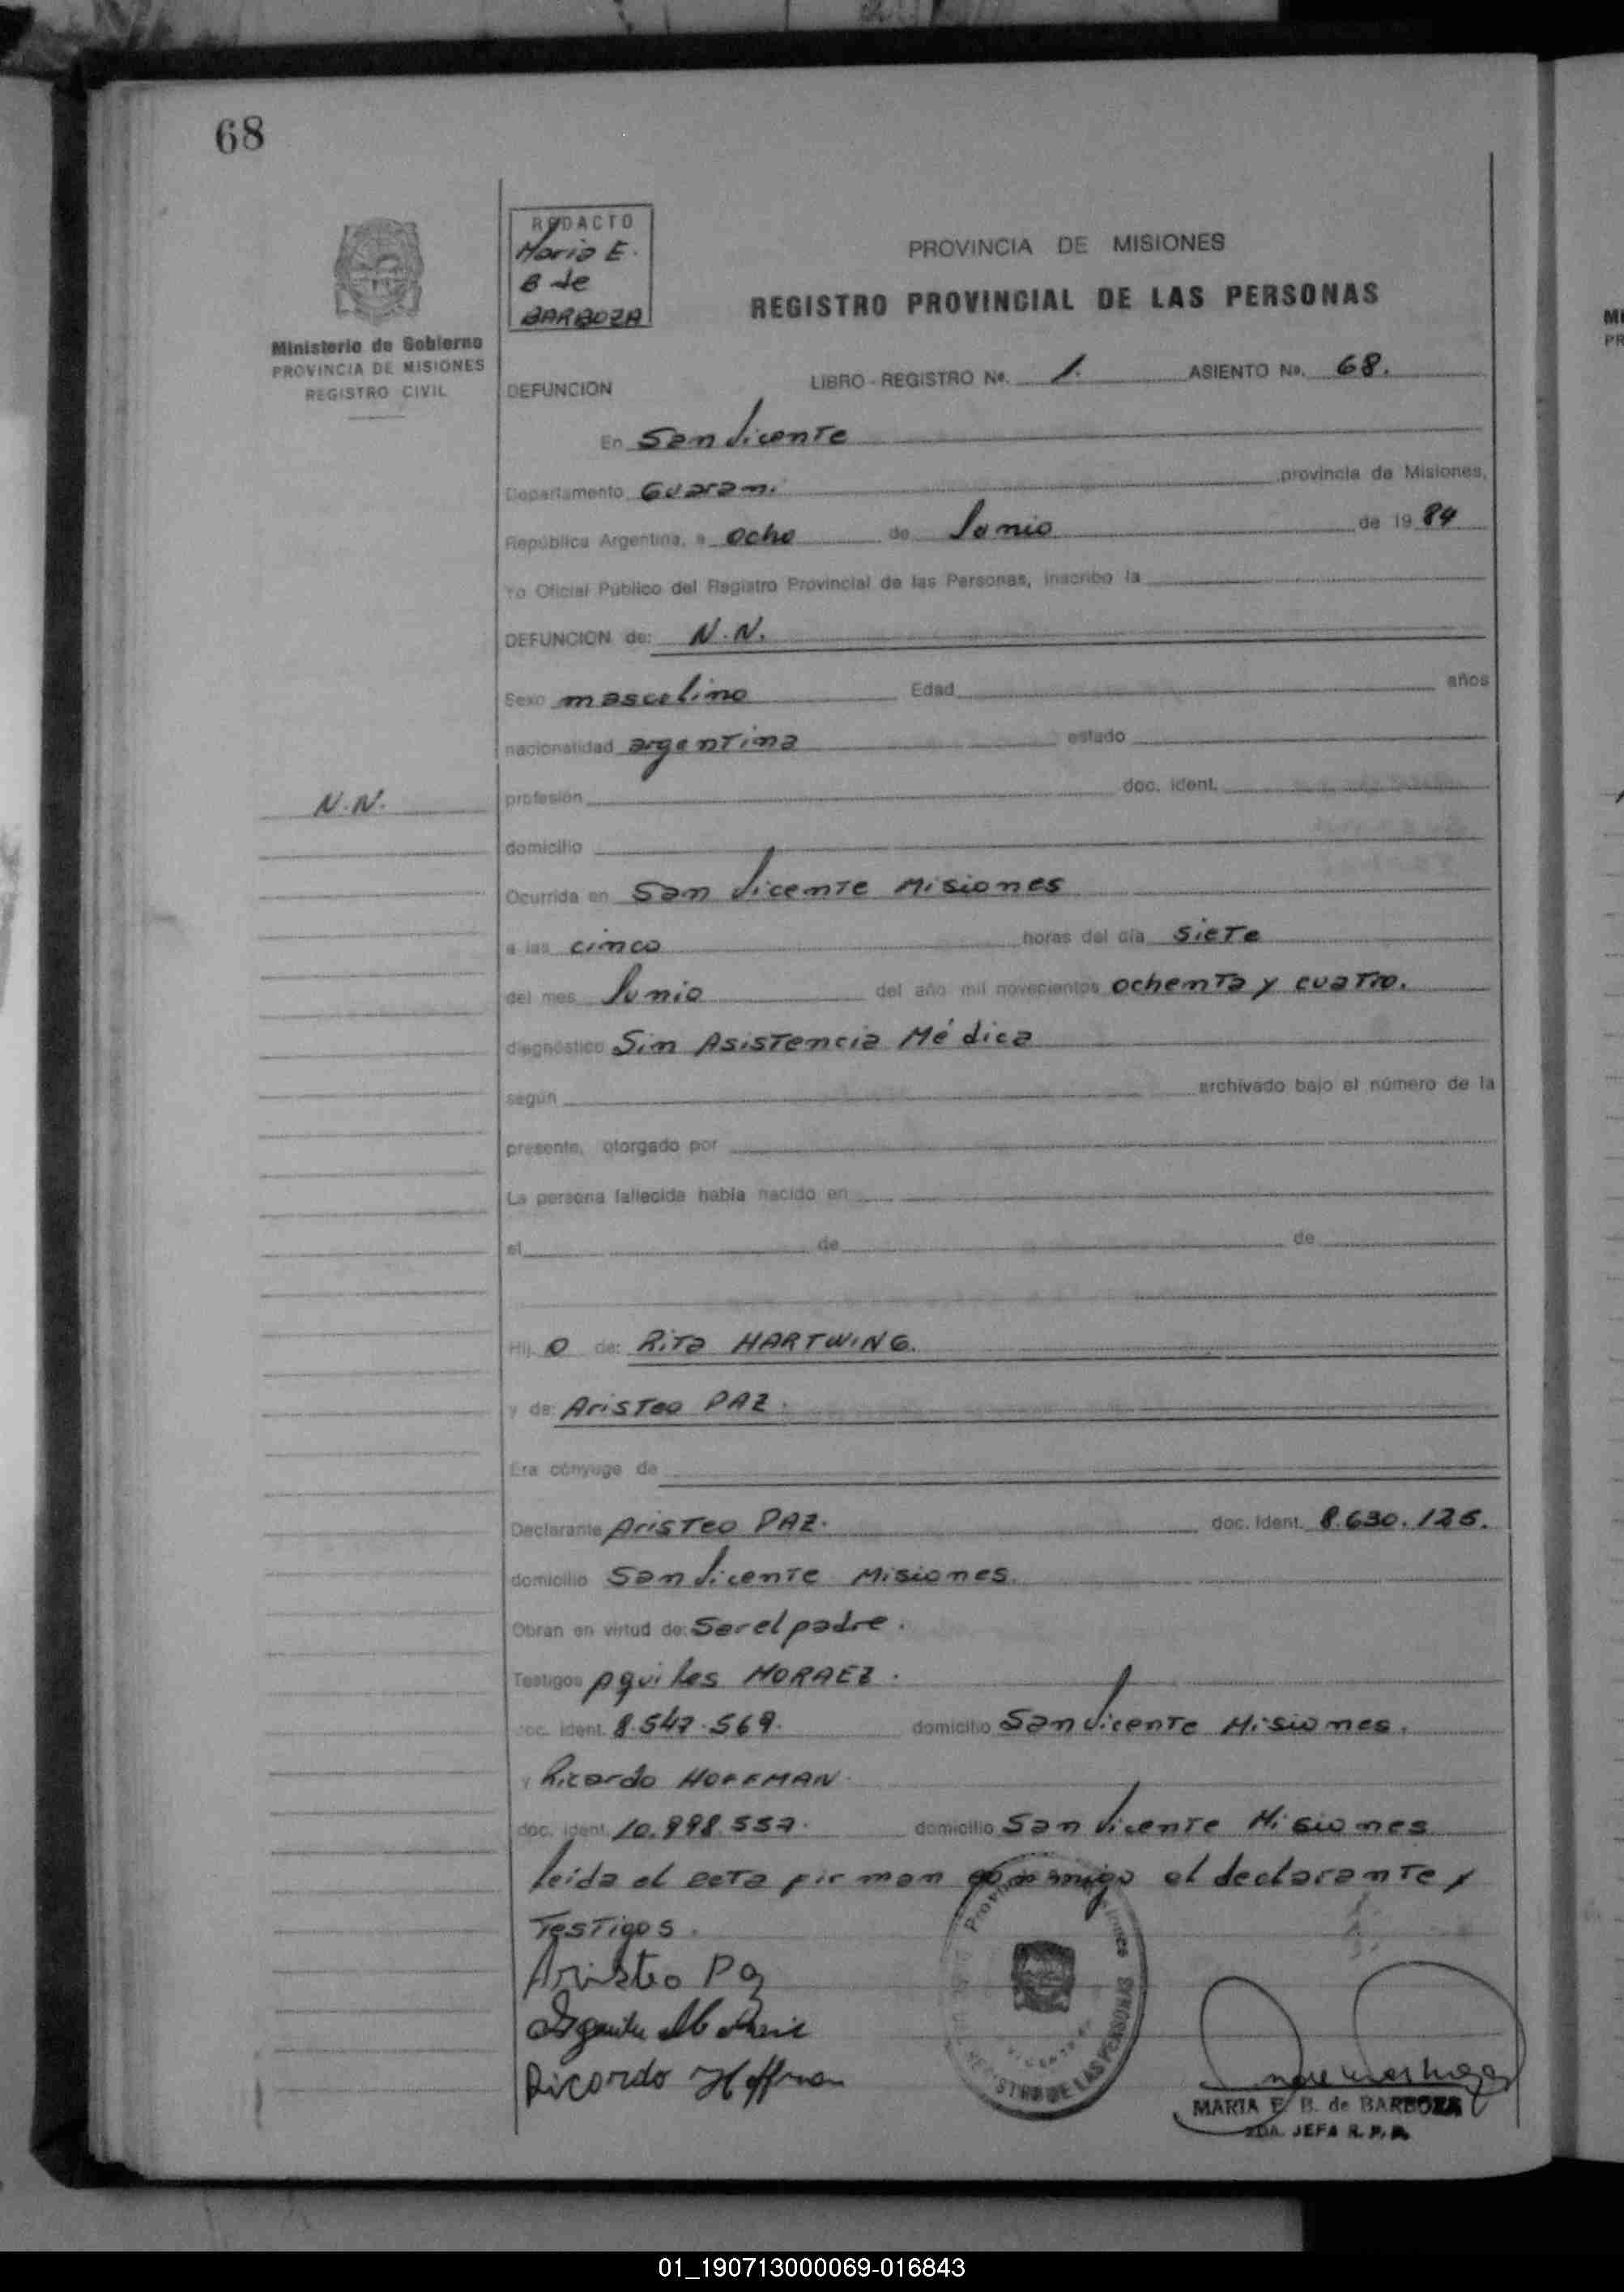 68
REDACTO
Maria E.
B de
BARBOZA
PROVINCIA DE MISIONES
REGISTRO PROVINCIAL DE LAS PERSONAS
Ministerio de Gobierno
PROVINCIA DE MISIONES
REGISTRO CIVIL
DEFUNCION LIBRO - REGISTRO Nº. 1. ASIENTO Nº. 68.
En San Vicente
Departamento Guarani provincia de Misiones,
República Argentina, a ocho de Junio de 1984
Yo Oficial Público del Registro Provincial de las Personas, inscribo la
DEFUNCION de: N.N.
Sexo masculino Edad años
nacionalidad argentina estado
N.N.
profesión doc. ident.
domicilio
Ocurrida en San Vicente Misiones
a las cinco horas del día siete
del mes Junio del año mil novecientos ochenta y cuatro.
diagnóstico Sin Asistencia Médica
según archivado bajo el número de la
presente, otorgado por
La persona fallecida había nacido en
el de de
Hij o de: Rita HARTWING.
y de: Aristeo PAZ.
Era cónyuge de
Declarante Aristeo PAZ. doc. ident. 8.630.125.
domicilio San Vicente Misiones.
Obran en virtud de: Ser el padre.
Testigos Aquiles MORAEZ.
doc. ident. 8.547.569. domicilio San Vicente Misiones.
y Ricardo HOFFMAN.
doc. ident. 10.998.557. domicilio San Vicente Misiones
leida el acta firman conmigo el declarante y
Testigos.
Aristeo Paz
Ricardo Hoffman
Provincia de Misiones
REGISTRO DE LAS PERSONAS
MARIA E. B. de BARBOZA
2DA. JEFA R.P.P.
01_190713000069-016843